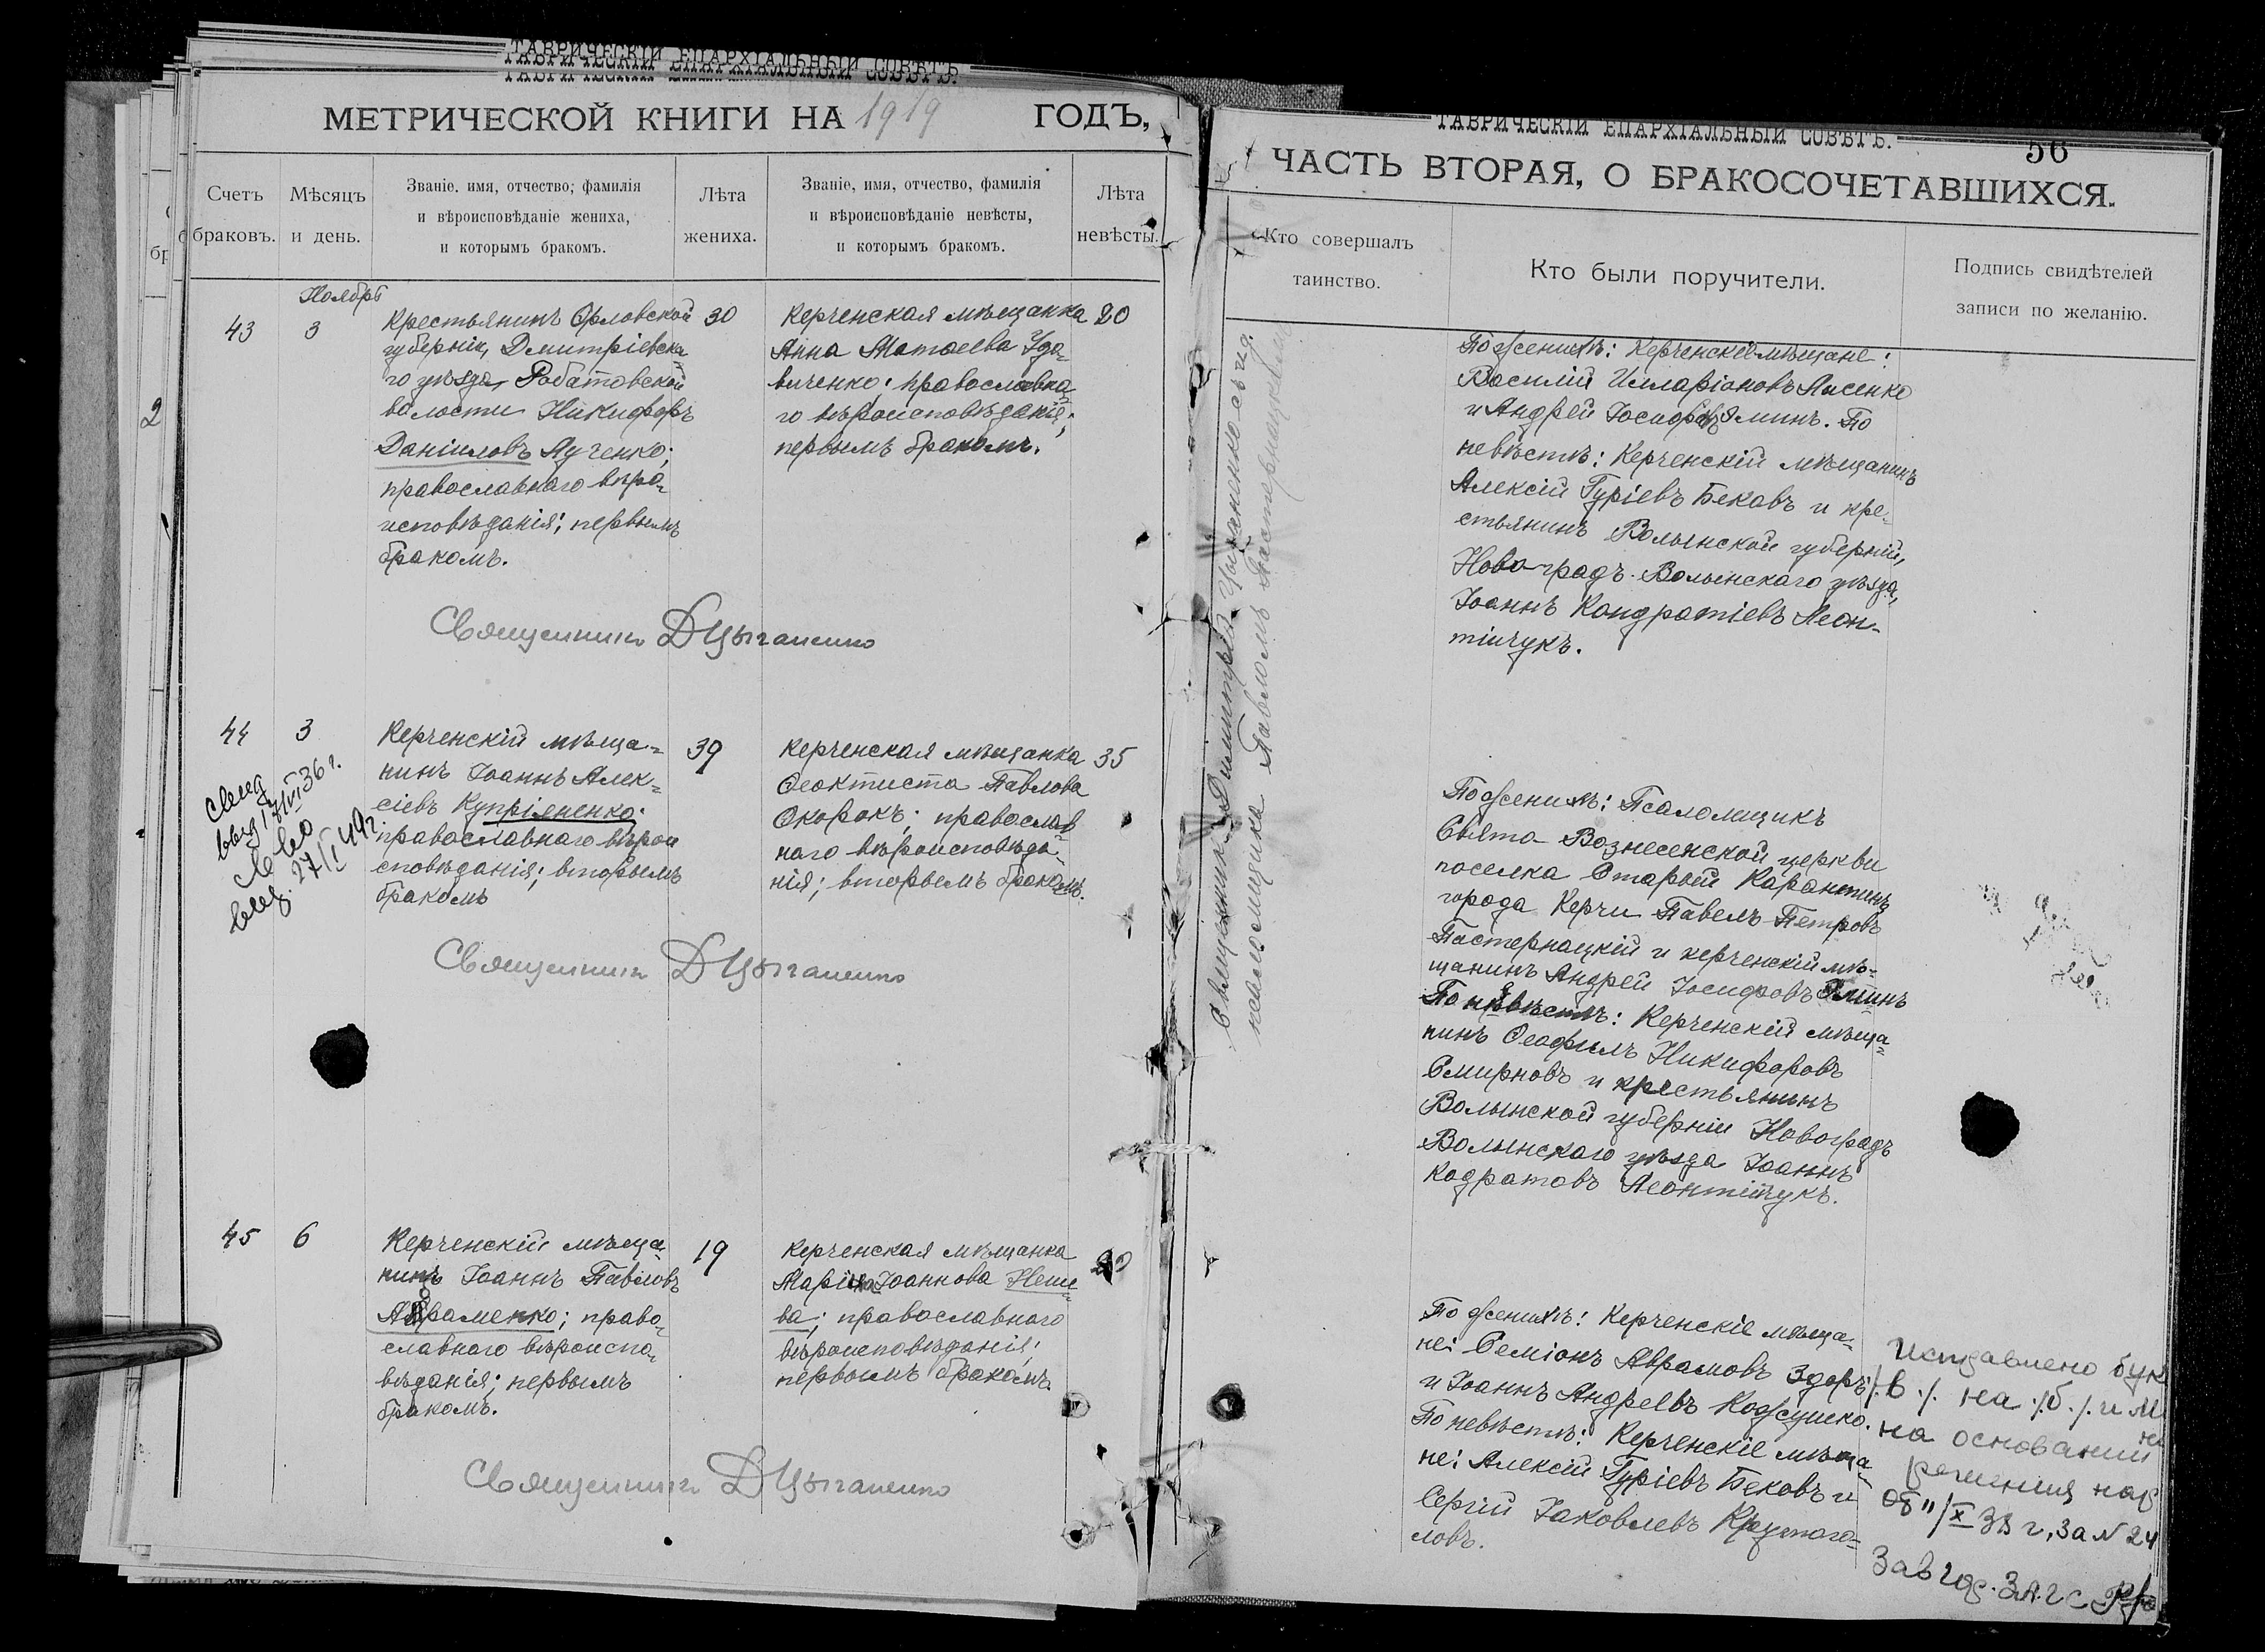 ТАВРИЧЕСКІЙ ЕПАРХІАЛЬНЫЙ СОВѢТЪ.
МЕТРИЧЕСКОЙ КНИГИ НА 1919 ГОДЪ,
Счетъ браковъ.
Мѣсяцъ и день.
Званіе, имя, отчество, фамилія
и вѣроисповѣданіе жениха,
и которымъ бракомъ.
Лѣта жениха.
Званіе, имя, отчество, фамилія
и вѣроисповѣданіе невѣсты,
и которымъ бракомъ.
Лѣта невѣсты.
43
Ноября
3
Крестьянинъ Орловской
губерніи, Дмитріевска
го уѣзда, Робатовской
волости Никифоръ
Даніиловъ Лученко;
православнаго вѣро-
исповѣданія; первымъ
бракомъ.
30
Керченская мѣщанка
Анна Матѳеева Удо-
виченко; православна-
го вѣроисповѣданія;
первымъ бракомъ.
20
Священникъ Д Цыганенко
44
3
27/I 49 г.
Керченскій мѣща-
нинъ Іоаннъ Алек-
сіевъ Купріяненко;
православнаго вѣрои
сповѣданія; вторымъ
бракомъ
39
Керченская мѣщанка
Ѳеоктиста Павлова
Окорокъ; православ
наго вѣроисповѣда-
нія; вторымъ бракомъ.
35
Священникъ Д Цыганенко
45
6
Керченскій мѣща-
нинъ Іоаннъ Павловъ
Абраменко; право-
славнаго вѣроиспо-
вѣданія; первымъ
бракомъ.
19
Керченская мѣщанка
Іоаннова
ва; православнаго
вѣроисповѣданія;
первымъ бракомъ.
20
Священникъ Д Цыганенко
ТАВРИЧЕСКІЙ ЕПАРХІАЛЬНЫЙ СОВѢТЪ.
56
ЧАСТЬ ВТОРАЯ, О БРАКОСОЧЕТАВШИХСЯ.
Кто совершалъ
таинство.
Кто были поручители.
Подпись свидѣтелей
записи по желанію.
Священникъ Димитрій Цыганенко съ и.д.
псаломщика Павломъ Пастернацкимъ
По женихѣ: Керченскіе мѣщане:
Василій Илларіоновъ Лисенко
и Андрей Іосифовъ Яминъ. По
невѣстѣ: Керченскій мѣщанинъ
Алексій Гуріевъ Бековъ и кре-
стьянинъ Волынской губерніи,
Новоградъ-Волынскаго уѣзда,
Іоаннъ Кондратіевъ Леон-
тійчукъ.
По женихѣ: Псаломщикъ
Свято-Вознесенской церкви
поселка Старый Карантинъ
города Керчи Павелъ Петровъ
Пастернацкій и керченскій мѣ-
щанинъ Андрей Іосифовъ Яминъ
По невѣстѣ: Керченскій мѣща-
нинъ Ѳеофилъ Никифоровъ
Смирновъ и крестьянинъ
Волынской губерніи Новоградъ
Волынскаго уѣзда Іоаннъ
Кодратовъ Леонтійчукъ.
По женихѣ: Керченскіе мѣща-
не: Семіонъ Аврамовъ Здоръ
и Іоаннъ Андреевъ Кожушко.
По невѣстѣ: Керченскіе мѣща-
не: Алексій Гуріевъ Бековъ и
Сергій Іаковлевъ Крутого-
ловъ.
Исправлено бук
/.в./. на /.б./. и
на основании
решения нар
за № 24
Зав гор. ЗАГС